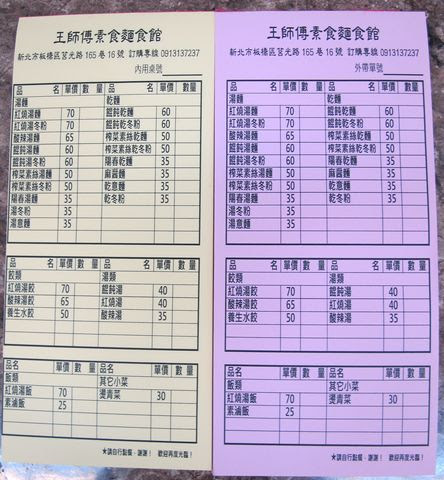 王師傅素食麵食館
新北市板橋區莒光路 165 巷 16 號 訂購專線 0913137237
內用桌號
品 名 單價 數 量 品 名 單價 數 量
湯麵 乾麵
紅燒湯麵 70 餛飩乾麵 60
紅燒湯冬粉 70 餛飩乾冬粉 60
酸辣湯麵 65 榨菜素絲乾麵 50
餛飩湯麵 60 榨菜素絲乾冬粉 50
餛飩湯冬粉 60 陽春乾麵 35
榨菜素絲湯麵 50 麻醬麵 35
榨菜素絲冬粉 50 乾意麵 35
陽春湯麵 35 乾冬粉 35
湯冬粉 35
湯意麵 35
品名 單價 數 量 品名 單價 數 量
餃類 湯類
紅燒湯餃 70 餛飩湯 40
酸辣湯餃 65 紅燒湯 40
養生水餃 50 酸辣湯 35
品名 單價 數 量 品名 單價 數 量
飯類 其它小菜
紅燒湯飯 70 燙青菜 30
素滷飯 25
★請自行點餐,謝謝! 歡迎再度光臨!
王師傅素食麵食館
新北市板橋區莒光路 165 巷 16 號 訂購專線 0913137237
外帶單號
品 名 單價 數 量 品 名 單價 數 量
湯麵 乾麵
紅燒湯麵 70 餛飩乾麵 60
紅燒湯冬粉 70 餛飩乾冬粉 60
酸辣湯麵 65 榨菜素絲乾麵 50
餛飩湯麵 60 榨菜素絲乾冬粉 50
餛飩湯冬粉 60 陽春乾麵 35
榨菜素絲湯麵 50 麻醬麵 35
榨菜素絲冬粉 50 乾意麵 35
陽春湯麵 35 乾冬粉 35
湯冬粉 35
湯意麵 35
品名 單價 數 量 品名 單價 數 量
餃類 湯類
紅燒湯餃 70 餛飩湯 40
酸辣湯餃 65 紅燒湯 40
養生水餃 50 酸辣湯 35
品名 單價 數 量 品名 單價 數 量
飯類 其它小菜
紅燒湯飯 70 燙青菜 30
素滷飯 25
★請自行點餐,謝謝! 歡迎再度光臨!